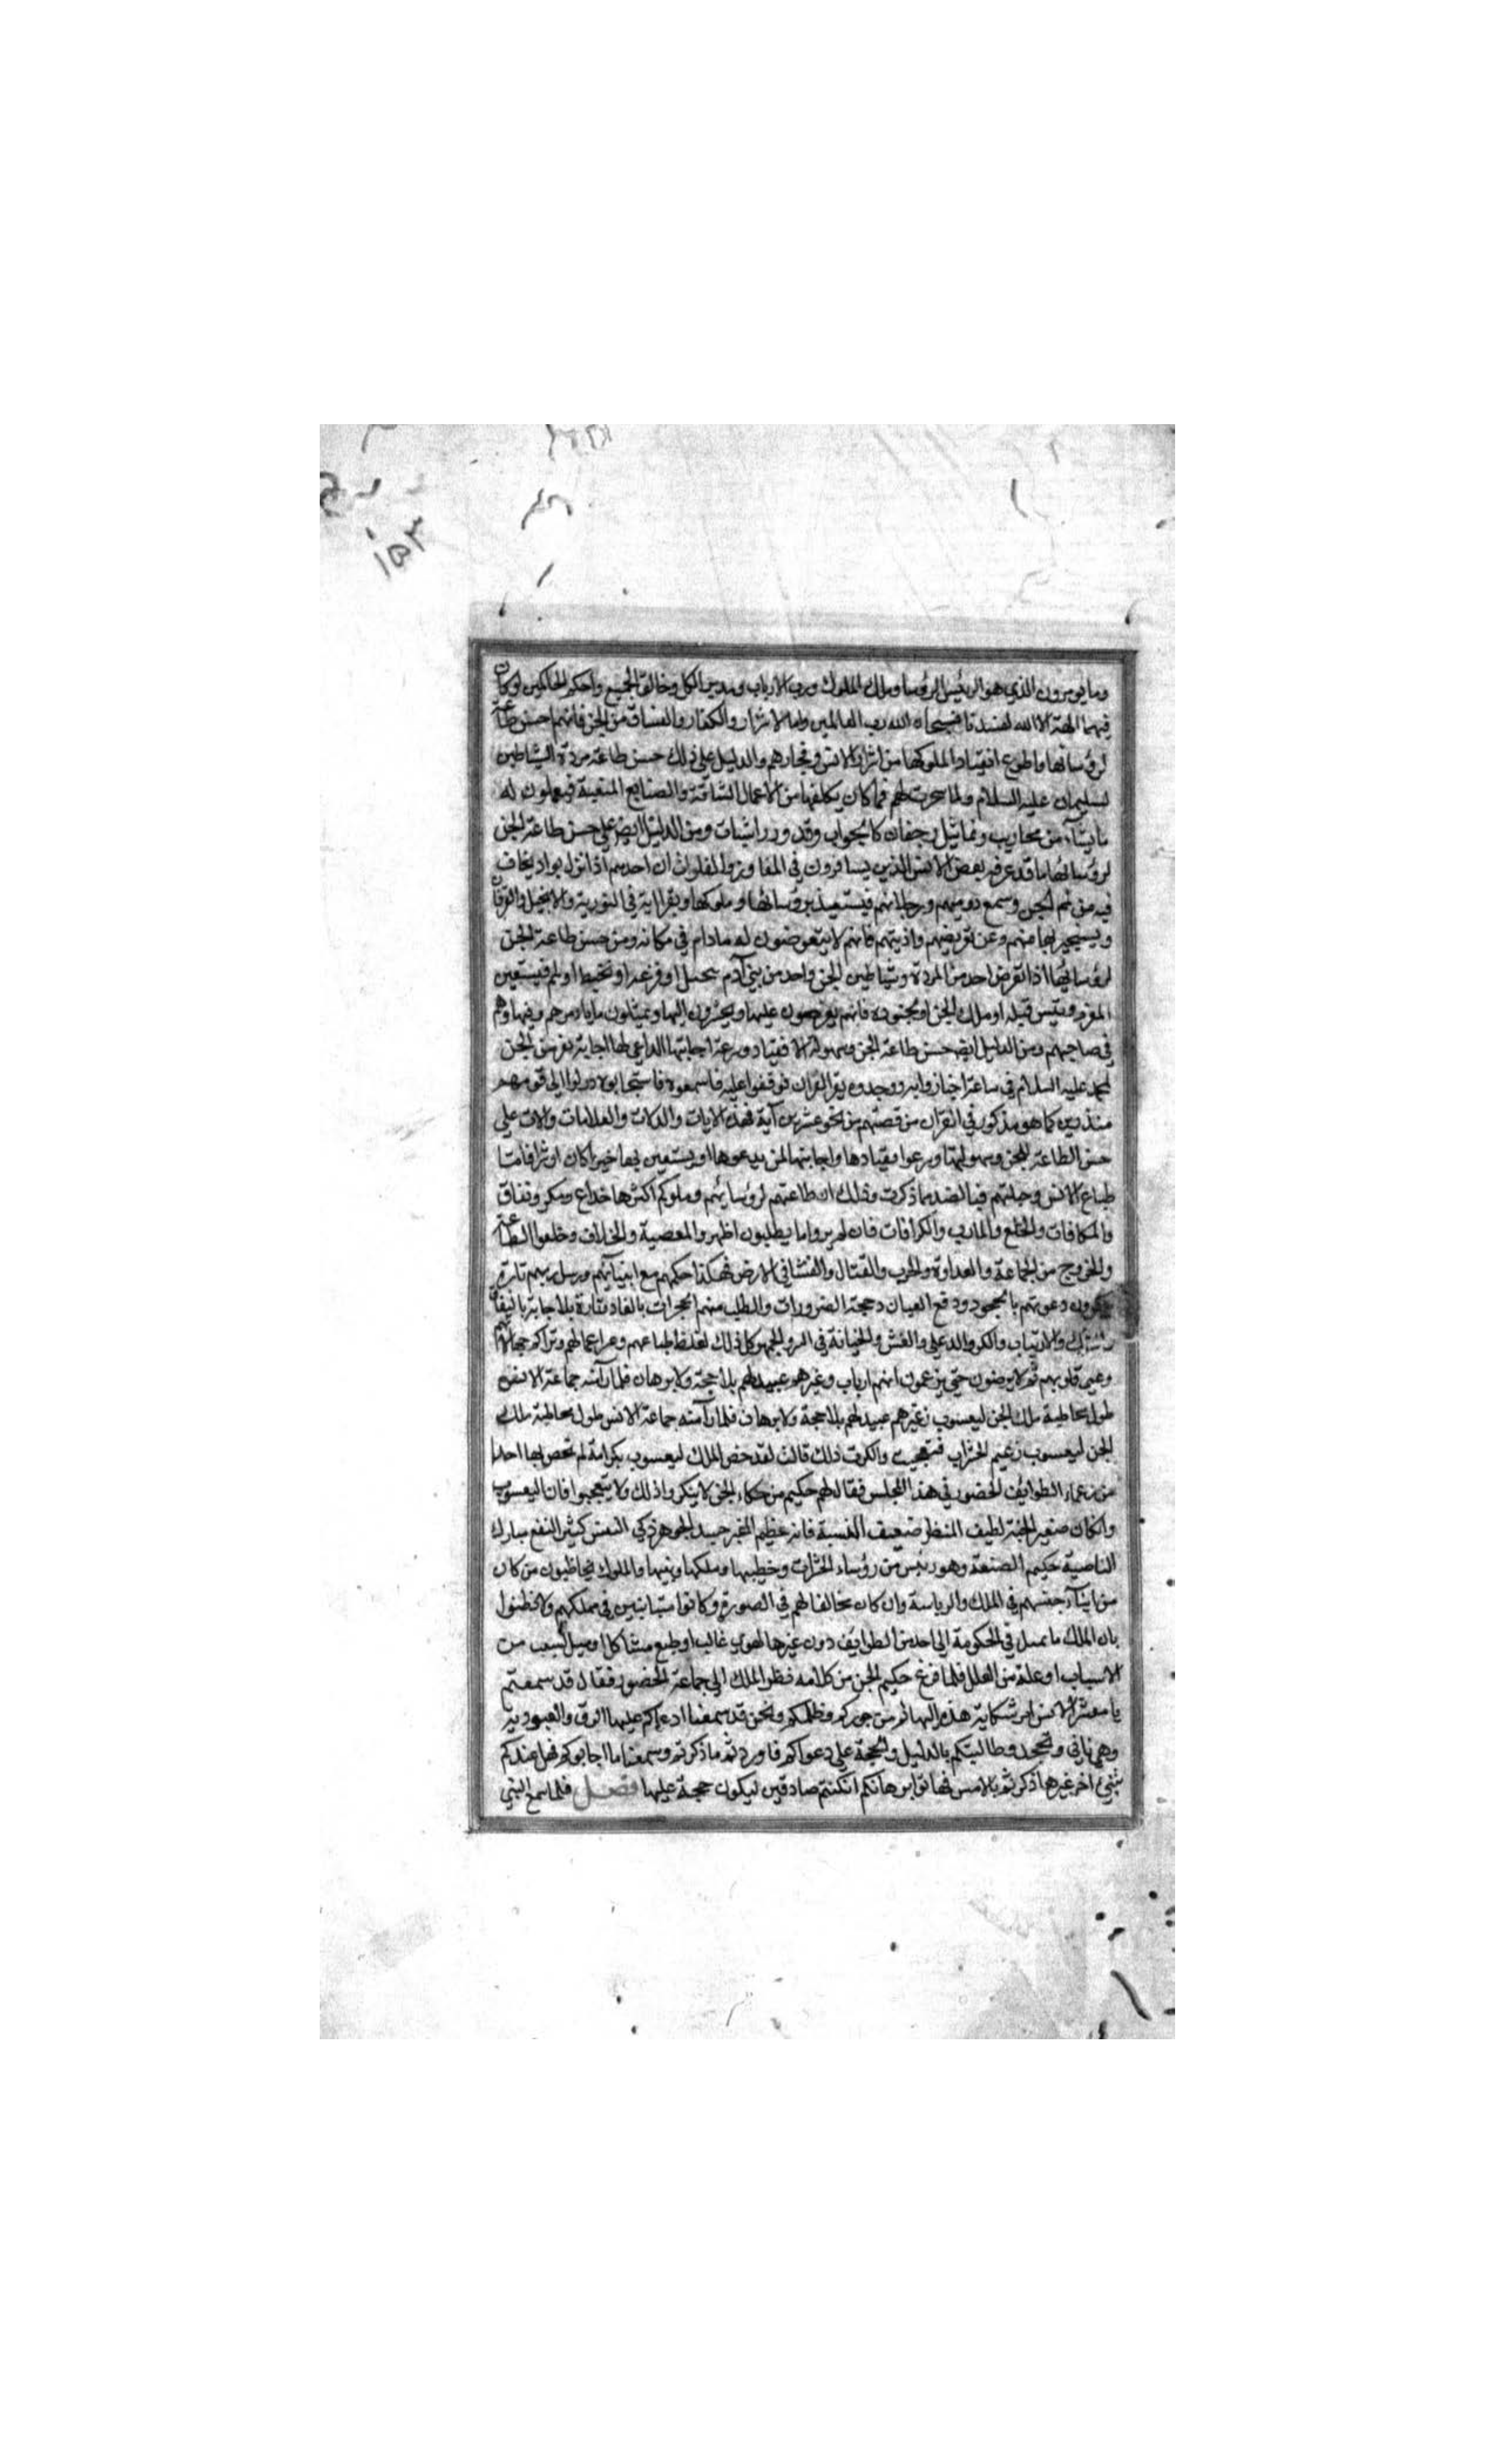 ١٥٣
وما يومرون الذي هو الرئيس الرؤسا وملك الملوك ورب الارباب ومدبر الكل وخالق الجميع واحكم الحاكمين لوكان
فيهما الهة الا الله لفسدتا فسبحان الله رب العالمين واما الاشرار والكفار والفساق من الجن فانهم احسن طاعة
لرؤسائها واطوع انقيادا لملوكها من اشرار الانس وفجارهم والدليل على ذلك حسن طاعة مردة الشياطين
لسليمان عليه السلام ولما سخرت لهم فما كان يكلفها من الاعمال الشاقة والصنايع المتعبة فيعملون له
ما يشاء من محاريب وتماثيل وجفان كالجواب وقدور راسيات ومن الدليل ايض على حسن طاعة الجن
لرؤسائها ما قد عرفه بعض الانس الذين يسافرون في المفاوز والفلوات ان احدهم اذا نزل بواد يخاف
فيه من لمم الجن وسمع دويهم ورجلانهم فيستعيذ برؤسائها وملوكها ويقرا اية في التورية والانجيل والفرقان
ويستجير بها منهم وعن تعريضهم واذيتهم فانهم لا يتعرضون له مادام في مكانه ومن حسن طاعة الجن
لرؤسائها اذا تعرض احد من المردة وشياطين الجن واحد من بني آدم بخبل او فزعه او تخبط او لمم فيستعين
المعزم برئيس قبيله او ملك الجن او بجنوده فانهم يعرضون عليها ويحشرون اليها ويمتثلون ما يامرهم وينهاهم
في صاحبهم ومن الدليل ايض حسن طاعة الجن وسهولة الانقياد وسرعة اجابتها الداعي لها اجابة نفر من الجن
لمحمد عليه السلام في ساعة اجتازوا به ووجدوه يقرا القران فوقفوا عليه فاسمعوه فاستجابوه وولوا الى قومهم
منذرين كما هو مذكور في القران من قصتهم من نحو عشرين آية فهذه الايات والدلات والعلامات دالات على
حسن الطاعة للجن وسهولتها وسرعة انقيادها واجابتها لمن يدعوها او يستعين بها خيرا كان او شرا فاما
طباع الانس وجبلتهم فبالضد مما ذكرت وذلك ان طاعتهم لرؤسائهم وملوكهم اكثرها خداع ومكر ونفاق
والمكافات والخلع والمارب والكرامات فان لم يروا ما يطلبون اظهروا المعصية والخلاف وخلعوا الطاعة
والخروج من الجماعة والعداوة والحرب والقتال والفساد في الارض فهكذا حكمهم مع انبيائهم ورسل ربهم تارة
ينكرون دعوتهم بالجحود ودفع العيان وحجة الضرورات والطلب منهم المعجزات بالعناد وتارة بالاجابة بالنفاق
والشك والارتياب والمكر والدغل والغش والخيانة في السر والجهر كل ذلك لغلظ طباعهم وعسر اعمالهم وتراكم جهالاتهم
وعمى قلوبهم ثم لا يرضون حتى يزعمون انهم ارباب وغيرهم عبيد لهم بلا حجة ولا برهان فلما رآمنه جماعة الانس
طول مخاطبة ملك الجن ليعسوب زعيم عبيد لهم بلا حجة ولا برهان فلما رآمنه جماعة الانس طول مخاطبة ملك
الجن ليعسوب زعيم الحشرات فتعجبت وانكرت ذلك قالت لقد خص الملك ليعسوب بكرامة لم تخص بها احدا
من زعماء الطوايف الحضور في هذا المجلس فقال لهم حكيم من حكماء الجن لا ينكروا ذلك ولا يتعجبوا فان اليعسوب
وان كان صغير الجثة لطيف المنظر ضعيف البنية فانه عظيم المخبر جيد الجوهر ذكي النفس كثير النفع مبارك
الناصية حكيم الصنعة وهو رئيس من رؤساء الحشرات وخطيبها وملكها ونبيها والملوك يخاطبون من كان
من ابناء جنسهم في الملك والرياسة وان كان مخالفا لهم في الصورة وكانوا متباينين في مملكتهم ولا تظنوا
بان الملك ما يميل في الحكومة الى احد من الطوايف دون غيرها لهوى غالب او طبع مشاكل او ميل لسبب من
الاسباب او علة من العلل فلما فرغ حكيم الجن من كلامه نظر الملك الى جماعة الحضور فقال قد سمعتم
يا معشر الانس امر شكاية هذه البهائم من جوركم وظلمكم ونحن قد سمعنا ادعاكم عليها الرق والعبودية
وهي تابى وتجحد وطالبتكم بالدليل والحجة على دعواكم فاوردتم ما ذكرتم وسمعنا ما اجابوكم فهل عندكم
شيئ اخر غير ما ذكرتم بالامس فهاتوا برهانكم ان كنتم صادقين ليكون حجة عليها فصل فلما سمع النبي